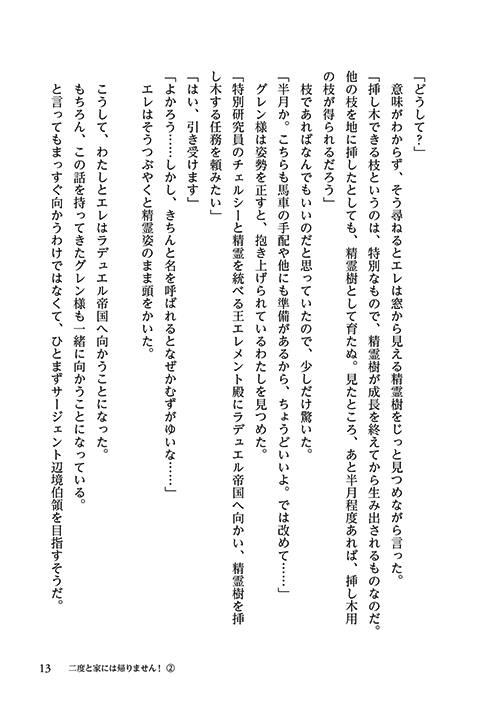 「どうして？」
　意味がわからず、そう尋ねるとエレは窓から見える精霊樹をじっと見つめながら言った。
「挿し木できる枝というのは、特別なもので、精霊樹が成長を終えてから生み出されるものなのだ。
他の枝を地に挿したとしても、精霊樹として育たぬ。見たところ、あと半月程度あれば、挿し木用
の枝が得られるだろう」
　枝であればなんでもいいのだと思っていたので、少しだけ驚いた。
「半月か。こちらも馬車の手配や他にも準備があるから、ちょうどいいよ。では改めて……」
　グレン様は姿勢を正すと、抱き上げられているわたしを見つめた。
「特別研究員のチェルシーと精霊を統べる王エレメント殿にラデュエル帝国へ向かい、精霊樹を挿
し木する任務を頼みたい」
「はい、引き受けます」
「よかろう……しかし、きちんと名を呼ばれるとなぜかむずがゆいな……」
　エレはそうつぶやくと精霊姿のまま頭をかいた。
　こうして、わたしとエレはラデュエル帝国へ向かうことになった。
　もちろん、この話を持ってきたグレン様も一緒に向かうことになっている。
　と言ってもまっすぐ向かうわけではなくて、ひとまずサージェント辺境伯領を目指すそうだ。
13　二度と家には帰りません！②